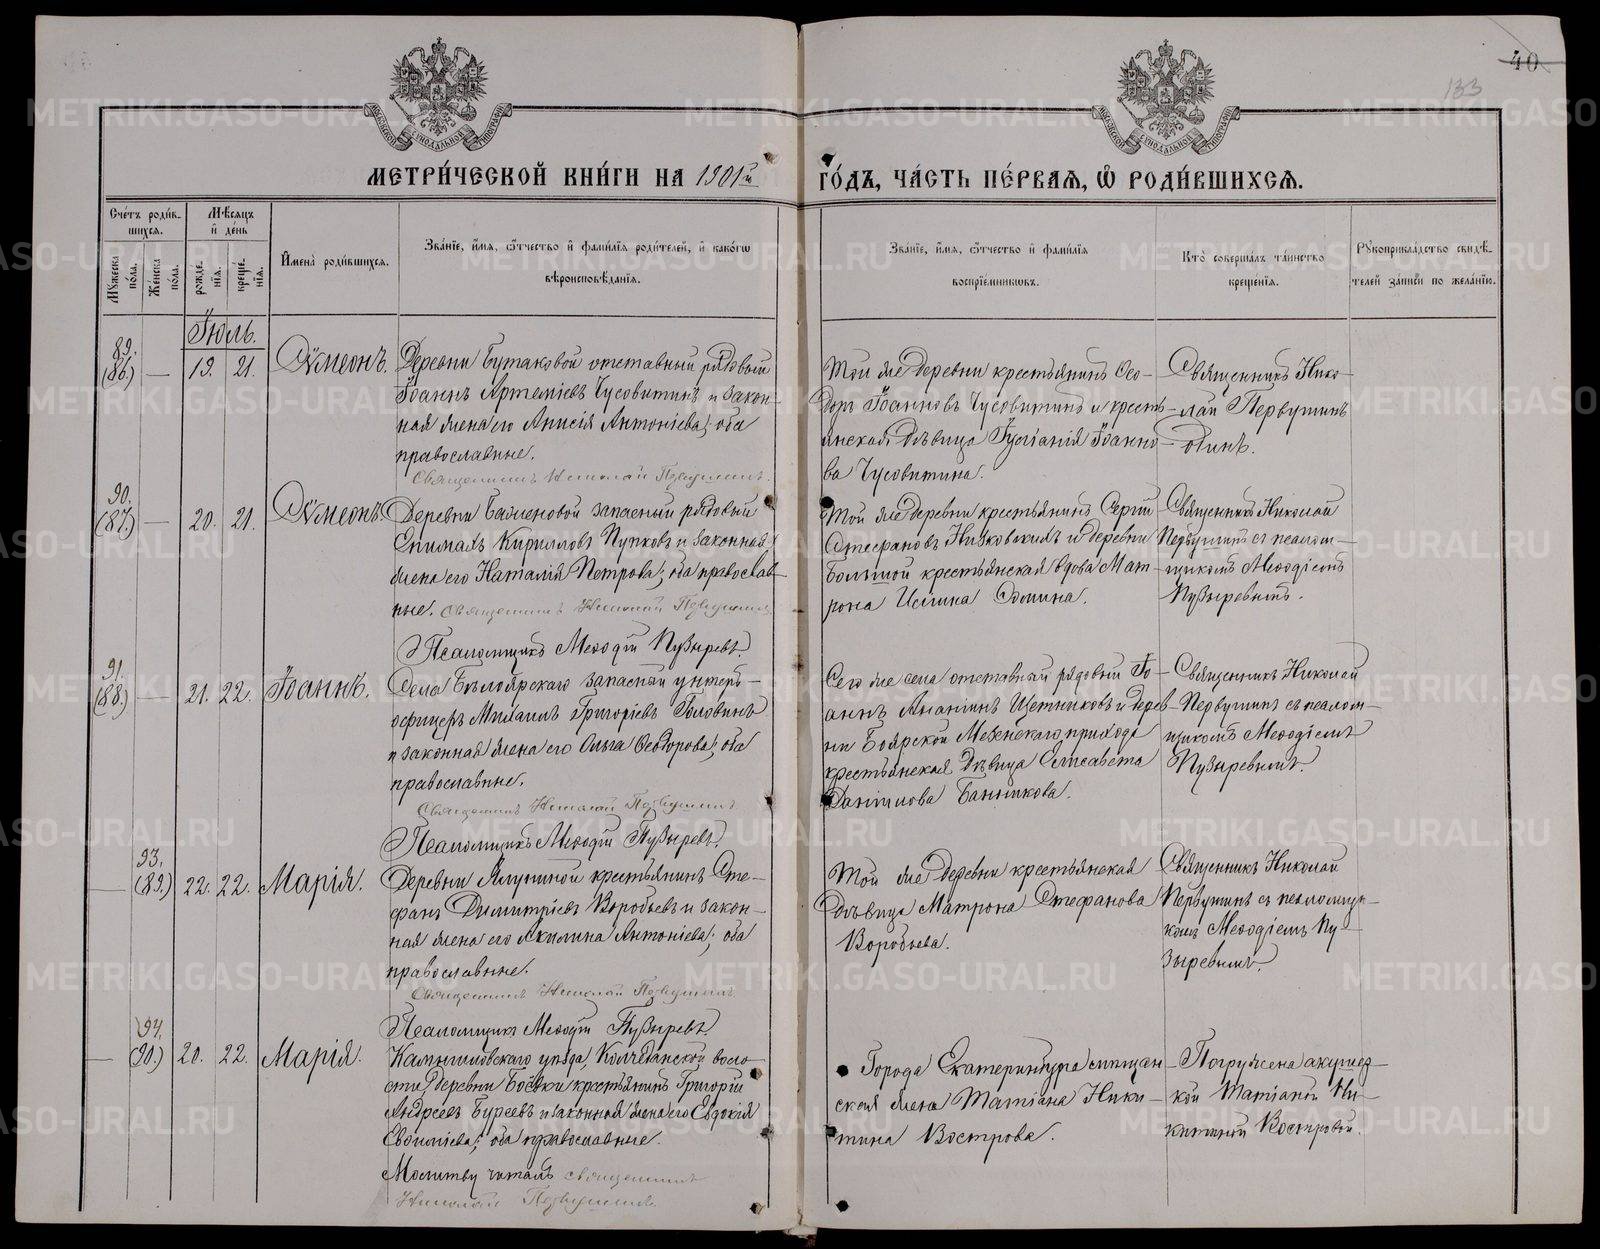 40
133
МЕТРИ́ЧЕСКОЙ КНИ́ГИ НА 1901й
ГО́ДЪ, ЧА́СТЬ ПЕ́РВАЯ, Ѡ РОДИ́ВШИХСЯ.
Сче́тъ роди́в-
шихся.
Му́жеска по́ла.
Же́нска по́ла.
Мѣ́сяцъ
и де́нь
рожде́-
нїя.
креще́-
нїя.
И҆мена̀ роди́вшихся.
Зва́нїе, и҆́мя, ѻ҆́тчество и҆ фами́лїя роди́телей, и҆ како́гѡ
вѣроисповѣ́данїя.
Зва́нїе, и҆́мя, ѻ҆́тчество и҆ фами́лїя
воспрїе́мниковъ.
Кто̀ соверша́лъ та́инство
креще́нїя.
Рꙋкоприкла́дство свидѣ́-
телей за́писи по жела́нїю.
Іюль.
89.
(86.) — 19. 21. Сѵмеонъ.
Деревни Бутаковой отставный рядовый
Іоаннъ Артеміевъ Чусовитинъ и закон-
ная жена его Анисія Антоніева; оба
православные.
Священникъ Николай Первушинъ.
Той же деревни крестьянинъ Ѳео-
доръ Іоанновъ Чусовитинъ и кресть-
янская дѣвица Іоанно-
ва Чусовитина.
Священникъ Нико-
лай Первушинъ
одинъ.
90.
(87.) — 20. 21. Сѵмеонъ.
Деревни Баженовой запасный рядовый
Кирилловъ Пупковъ и законная
жена его Наталія Петрова; оба православ-
ные. Священникъ Николай Первушинъ
Псаломщикъ Меѳодій Пузыревъ.
Той же деревни крестьянинъ Сергій
Стефановъ Низковскихъ и деревни
Большой крестьянская вдова Мат-
рона
Священникъ Николай
Первушинъ съ псалом-
щикомъ Меѳодіемъ
Пузыревымъ.
91.
(88.) — 21. 22. Іоаннъ.
Села Бѣлоярскаго запасный унтеръ-
офицеръ Михаилъ Григоріевъ Головинъ
и законная жена его Ольга Ѳеодорова; оба
православные.
Священникъ Николай Первушинъ
Псаломщикъ Меѳодій Пузыревъ.
Сего же села отставный рядовый Іо-
аннъ Ананіинъ Щетниковъ и дерев-
ни Боярской Мезенскаго прихода
крестьянская дѣвица Елисавета
Даніилова Банникова.
Священникъ Николай
Первушинъ съ псалом-
щикомъ Меѳодіемъ
Пузыревымъ.
93.
— (89.) 22. 22. Марія.
Деревни Ялуниной крестьянинъ Сте-
фанъ Димитріевъ Воробьевъ и закон-
ная жена его Акилина Антоніева; оба
православные.
Священникъ Николай Первушинъ
Псаломщикъ Меѳодій Пузыревъ.
Той же деревни крестьянская
дѣвица Матрона Стефанова
Воробьева.
Священникъ Николай
Первушинъ съ псаломщи-
комъ Меѳодіемъ Пу-
зыревымъ.
94.
— (90.) 20. 22. Марія.
Камышловскаго уѣзда, Колчеданской воло-
сти, деревни Боёвки крестьянинъ Григорій
Андреевъ Буреевъ и законная жена его Евдокія
Евѳиміева; оба православные.
Молитву читалъ священникъ
Николай Первушинъ.
Города Екатеринбурга мѣщан-
ская жена Татіана Ники-
тина Вострова.
Погружена акушер-
кой Татіаной Ни-
китиной Востровой.
METRIKI.GASO-URAL.RU